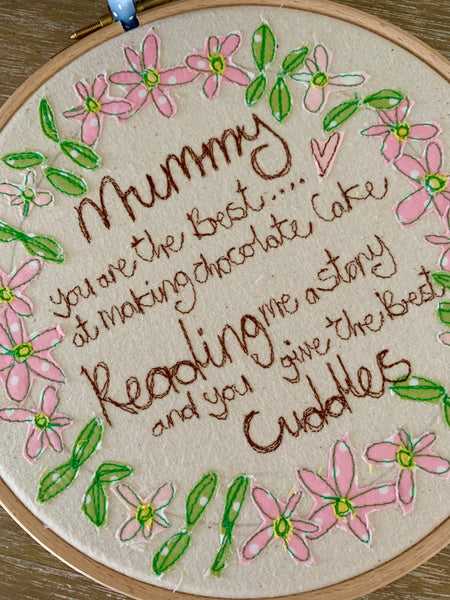 Mummy
you are the Best....
at making chocolate Cake
Reading me a story
and you give the Best
Cuddles